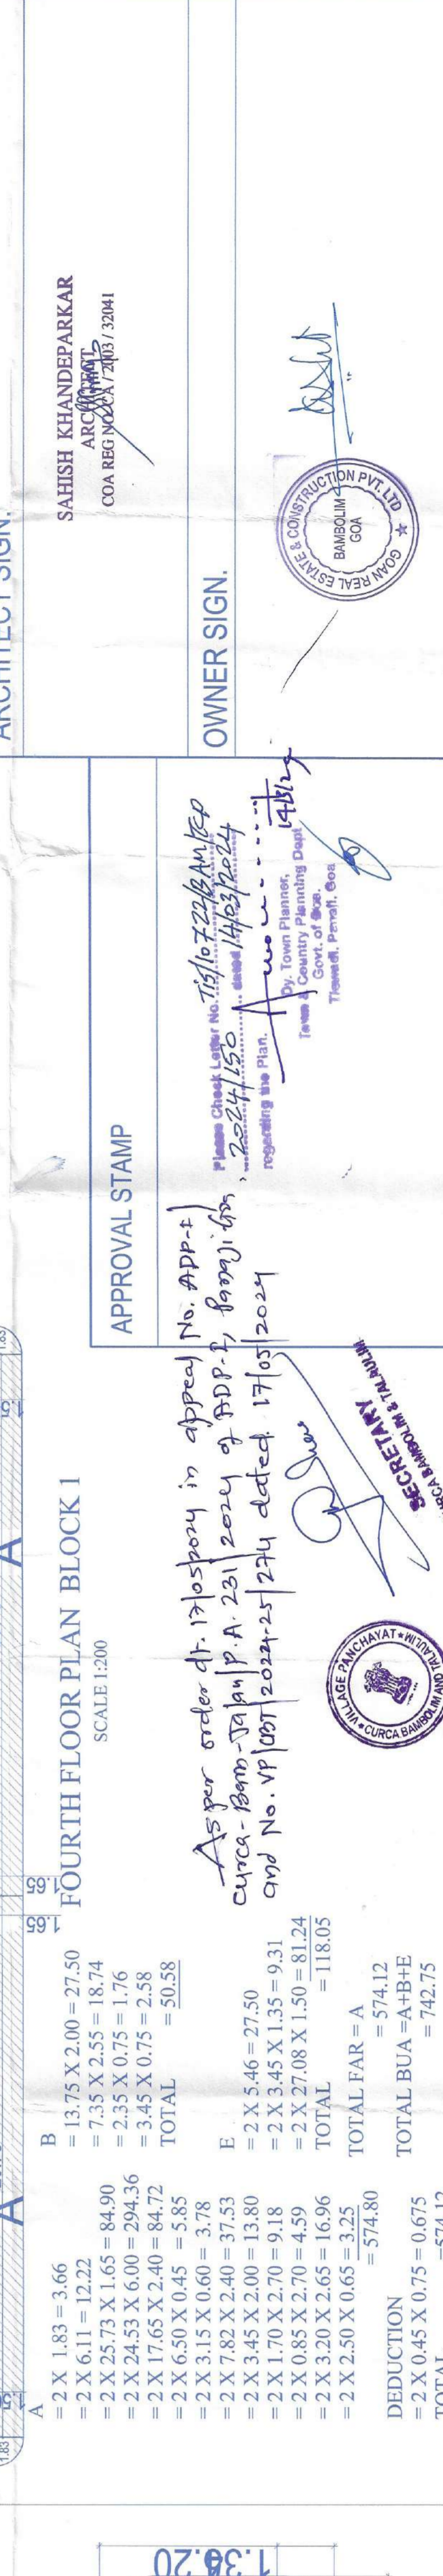 A
= 2 X 1.83 = 3.66
= 2 X 6.11 = 12.22
= 2 X 25.73 X 1.65 = 84.90
= 2 X 24.53 X 6.00 = 294.36
= 2 X 17.65 X 2.40 = 84.72
= 2 X 6.50 X 0.45 = 5.85
= 2 X 3.15 X 0.60 = 3.78
= 2 X 7.82 X 2.40 = 37.53
= 2 X 3.45 X 2.00 = 13.80
= 2 X 1.70 X 2.70 = 9.18
= 2 X 0.85 X 2.70 = 4.59
= 2 X 3.20 X 2.65 = 16.96
= 2 X 2.50 X 0.65 = 3.25
= 574.80
DEDUCTION
= 2 X 0.45 X 0.75 = 0.675
TOTAL
=574.12
B
= 13.75 X 2.00 = 27.50
= 7.35 X 2.55 = 18.74
= 2.35 X 0.75 = 1.76
= 3.45 X 0.75 = 2.58
TOTAL = 50.58
E
= 2 X 5.46 = 27.50
= 2 X 3.45 X 1.35 = 9.31
= 2 X 27.08 X 1.50 = 81.24
TOTAL = 118.05
TOTAL FAR = A
= 574.12
TOTAL BUA =A+B+E
= 742.75
A
A
1.83
1.65
1.65
FOURTH FLOOR PLAN BLOCK 1
SCALE 1:200
As per order dt. 17/05/2024 in appeal No. ADP-I/
Curca-Bam-Talau/P.A. 231/2024 of ADP-I, Panaji Goa,
and No. VP/CBT/2024-25/274 dated 17/05/2024
VILLAGE PANCHAYAT
CURCA BAMBOLIM AND TALAULIM
SECRETARY
CURCA BAMBOLIM & TALAULIM
APPROVAL STAMP
Please Check Letter No. TIS/10722/BAM/TCP
/2024/150 dated 14/03/2024
regarding the Plan.
14/3/24
Dy. Town Planner,
Town & Country Planning Dept
Govt. of Goa.
Tiswadi, Panaji, Goa
ARCHITECT SIGN.
SAHISH KHANDEPARKAR
ARCHITECT
COA REG NO. CA / 2003 / 32041
OWNER SIGN.
GOAN REAL ESTATE & CONSTRUCTION PVT. LTD
BAMBOLIM
GOA